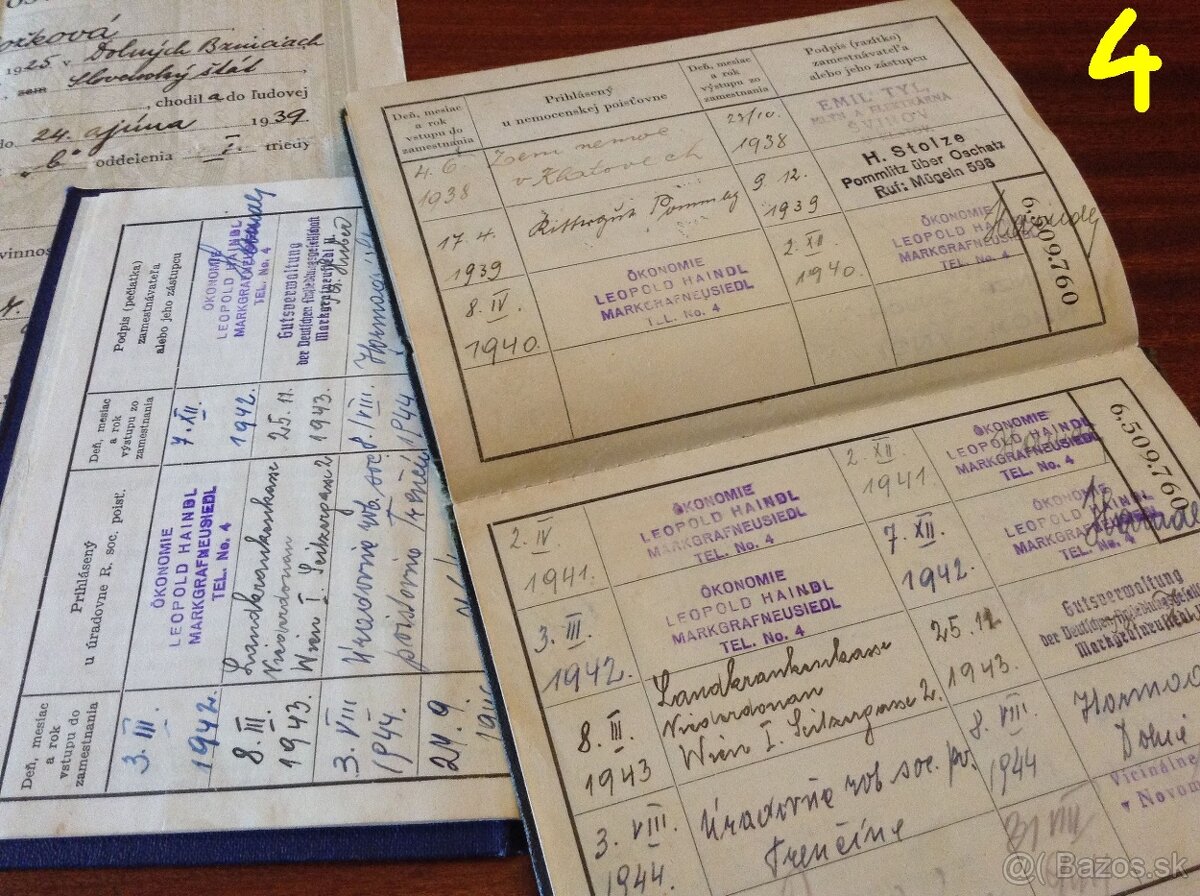 4
1925 v Dolných Bzinciach
zem Slovenský štát
, chodil a do ľudovej
24. a júna 1939
b" oddelenia I. triedy
vinnos
Deň, mesiac
a rok
vstupu do
zamestnania
Prihlásený
u nemocenskej poisťovne
Deň, mesiac
a rok
výstupu zo
zamestnania
Podpis (razítko)
zamestnávateľa
alebo jeho zástupcu
4. 6.
1938
Zem nemoc
v Klatovech
27/10.
1938
EMIL TYL,
MLÝN ELEKTRÁRNA
17. 4.
1939
Rittergut Pommlitz
9. 12.
1939
H. Stolze
Pommlitz über Oschatz
Ruf: Mügeln 598
8. IV.
1940.
ÖKONOMIE
LEOPOLD HAINDL
MARKGRAFNEUSIEDL
TEL. No. 4
2. XII.
1940
ÖKONOMIE
LEOPOLD HAINDL
MARKGRAFNEUSIEDL
TEL. No. 4
6,509.760
2. IV.
1941.
ÖKONOMIE
LEOPOLD HAINDL
MARKGRAFNEUSIEDL
TEL. No. 4
2. XII.
1941
ÖKONOMIE
LEOPOLD HAINDL
MARKGRAFNEUSIEDL
TEL. No. 4
6,509.760
3. III.
1942.
ÖKONOMIE
LEOPOLD HAINDL
MARKGRAFNEUSIEDL
TEL. No. 4
7. XII.
1942.
ÖKONOMIE
LEOPOLD HAINDL
MARKGRAFNEUSIEDL
TEL. No. 4
8. III.
1943
Landkrankenkasse
Niederdonau
Wien I. Seitzergasse 2.
25. 11.
1943.
Gutsverwaltung
der Deutschen Ansiedlungsgesellschaft
Markgrafneusiedl
3. VIII.
1944.
Úradovňe rob soc. po.
Trenčíne
8. VIII.
1944
Dolné
Vicinálne
v Novom
31 VIII
Deň, mesiac
a rok
vstupu do
zamestnania
Prihlásený
u úradovne R. soc. poisť.
Deň, mesiac
a rok
výstupu zo
zamestnania
Podpis (pečiatka)
zamestnávateľa
alebo jeho zástupcu
3. III.
1942.
ÖKONOMIE
LEOPOLD HAINDL
MARKGRAFNEUSIEDL
TEL. No. 4
7. XII.
1942.
ÖKONOMIE
LEOPOLD HAINDL
MARKGRAFNEUSIEDL
TEL. No. 4
8. III.
1943.
Landkrankenkasse
Niederdonau
Wien I. Seitzergasse 2
25. 11.
1943.
Gutsverwaltung
der Deutschen Ansiedlungsgesellschaft
Markgrafneusiedl
3. VIII
1944.
Úradovňe rob. soc.
poisťovňa Trenčín
8. VIII
1944
21. 9.
@( Bazos.sk